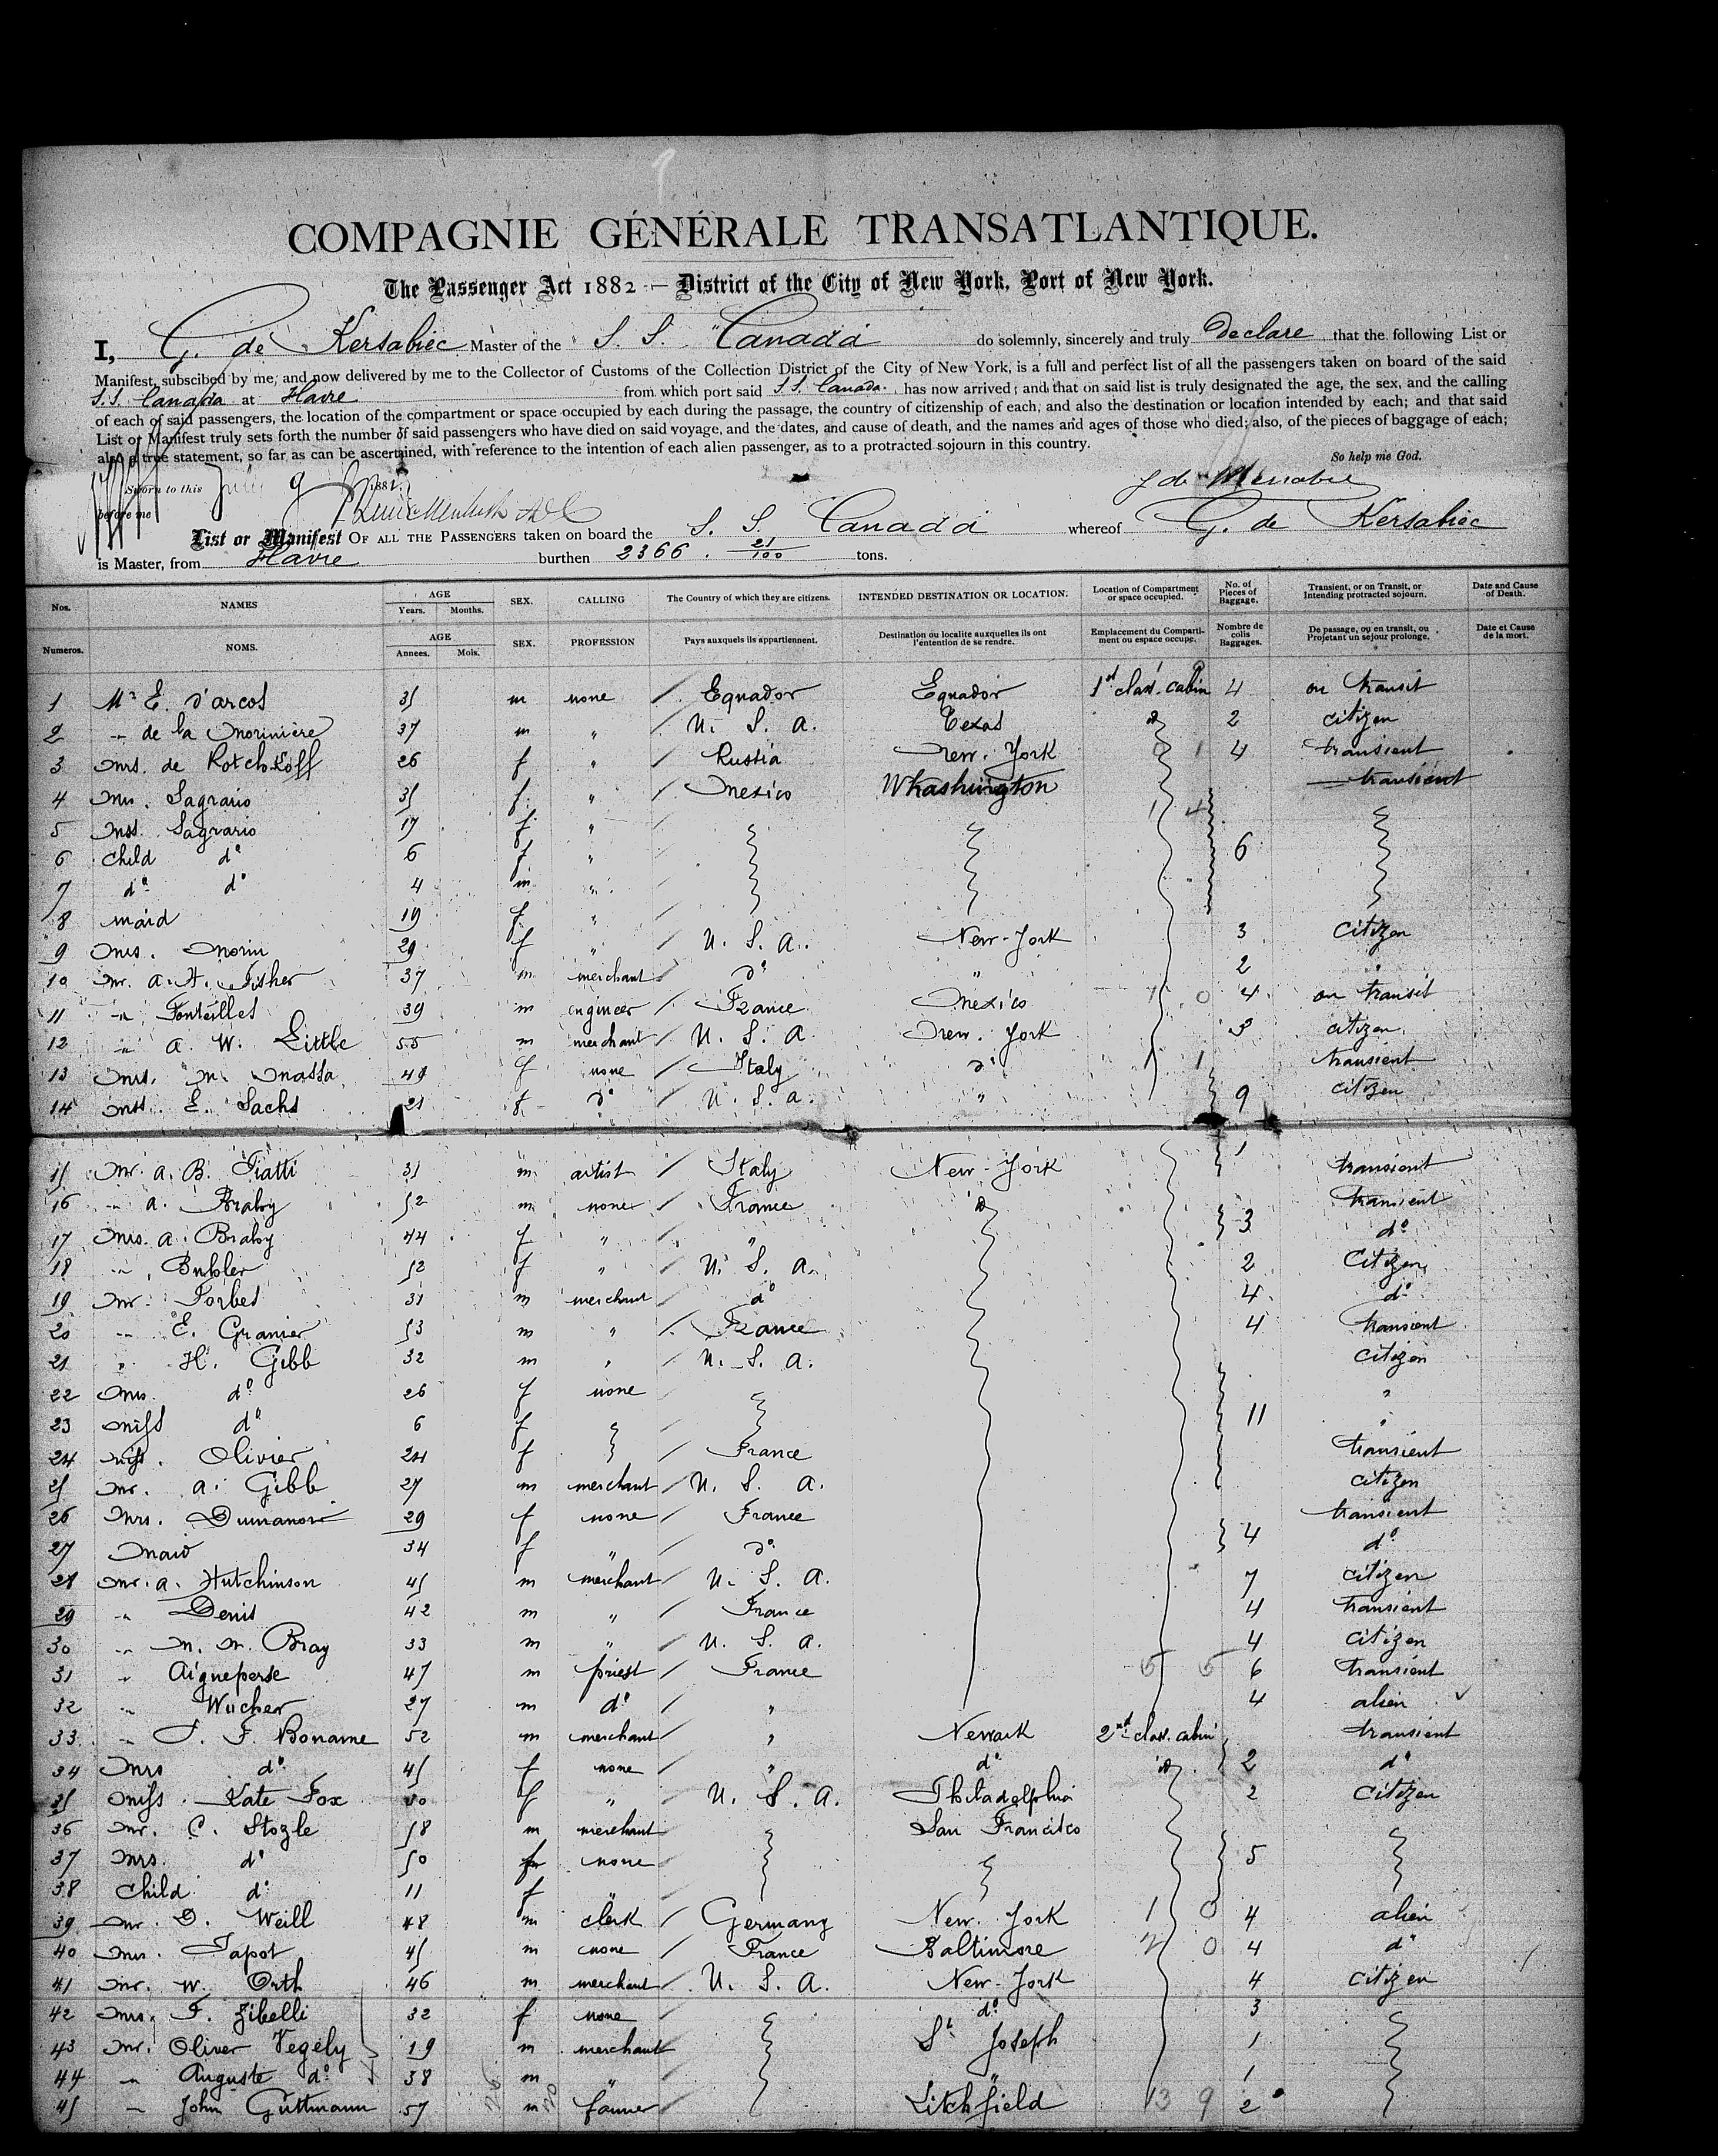 COMPAGNIE GÉNÉRALE TRANSATLANTIQUE.
The Passenger Act 1882 — District of the City of New York, Port of New York.
I, G. de Kersabiec Master of the S. S. "Canada do solemnly, sincerely and truly Declare that the following List or
Manifest, subscibed by me, and now delivered by me to the Collector of Customs of the Collection District of the City of New York, is a full and perfect list of all the passengers taken on board of the said
S.S. Canada at Havre from which port said S.S. Canada. has now arrived; and that on said list is truly designated the age, the sex, and the calling
of each of said passengers, the location of the compartment or space occupied by each during the passage, the country of citizenship of each, and also the destination or location intended by each; and that said
List or Manifest truly sets forth the number of said passengers who have died on said voyage, and the dates, and cause of death, and the names and ages of those who died; also, of the pieces of baggage of each;
also a true statement, so far as can be ascertained, with reference to the intention of each alien passenger, as to a protracted sojourn in this country.
So help me God.
Sworn to this July 9 188
before me
List or Manifest OF ALL THE PASSENGERS taken on board the S. S. Canada whereof G. de Kersabiec
is Master, from Havre burthen 2366. 21/100 tons.
Nos. NAMES AGE Years. Months. SEX. CALLING The Country of which they are citizens. INTENDED DESTINATION OR LOCATION. Location of Compartment or space occupied. No. of Pieces of Baggage. Transient, or on Transit, or Intending protracted sojourn. Date and Cause of Death.
Numeros. NOMS. AGE Annees. Mois. SEX. PROFESSION Pays auxquels ils appartiennent. Destination ou localite auxquelles ils ont l'entention de se rendre. Emplacement du Comparti- ment ou espace occupe. Nombre de colis Baggages. De passage, ou en transit, ou Projetant un sejour prolonge. Date et Cause de la mort.
1 Mr E. d'arcos 35 m none Equador Equador 1st class. cabin 4 on transit
2 " de la Morinière 37 m " U. S. A. Texas do 2 citizen
3 Mrs. de Rotchkoff 26 f " Russia New-York 4 transient
4 Mrs. Sagrario 35 f " Mexico Washington transient
5 Miss. Sagrario 17 f "
6 child do 6 f " 6
7 do do 4 m "
8 maid 19 f "
9 Mrs. Morin 29 f " U. S. A. New-York 3 citizen
10 Mr. A. H. Fisher 37 m merchant do " 2 "
11 " Fonteilles 39 m engineer France Mexico 4 on transit
12 " A. W. Little 55 m merchant U. S. A. New-York 3 citizen
13 Mrs. M. Massa 49 f none Italy do 1 1 transient
14 Miss. E. Sachs 21 f do U. S. A. " 9 citizen
15 Mr. A. B. Fiatti 31 m artist Italy New-York 1 transient
16 " A. Braby 52 m none France do transient
17 Mrs. A. Braby 44 f " " 3 do
18 " Buhler 52 f " U. S. A. 2 Citizen
19 Mr. Forbes 31 m merchant do 4 do
20 " E. Granier 53 m " France 4 transient
21 " H. Gibb 32 m " U. S. A. citizen
22 Mrs. do 26 f none "
23 Miss do 6 f 11 "
24 Miss. Olivier 24 f France transient
25 Mr. A. Gibb 27 m merchant U. S. A. citizen
26 Mrs. Dumanoir 29 f none France transient
27 Maid 34 f " do 4 do
28 Mr. A. Hutchinson 45 m merchant U. S. A. 7 citizen
29 " Denis 42 m " France 4 transient
30 " M. M. Bray 33 m " U. S. A. 4 citizen
31 " Aigueperse 47 m priest France 5 5 6 transient
32 " Wucher 27 m do " 4 alien
33 " J. F. Boname 52 m merchant " Newark 2nd class. cabin transient
34 Mrs do 45 f none " do do 2 do
35 Miss. Kate Fox f " U. S. A. Philadelphia 2 Citizen
36 Mr. C. Stozle 58 m merchant San Francisco
37 Mrs. do 50 f none 5
38 Child do 11 f "
39 Mr. D. Weill 48 m clerk Germany New-York 1 0 4 alien
40 Mrs. Tapot 45 m none France Baltimore 0 4 do
41 Mr. W. Orth 46 m merchant U. S. A. New-York 4 citizen
42 Mrs. F. Zibelli 32 f none do 3
43 Mr. Oliver Vegely 19 m merchant St Joseph 1
44 " Auguste do 38 m " " 1
45 " John Guttmann 57 m farmer Litchfield 13 9 2